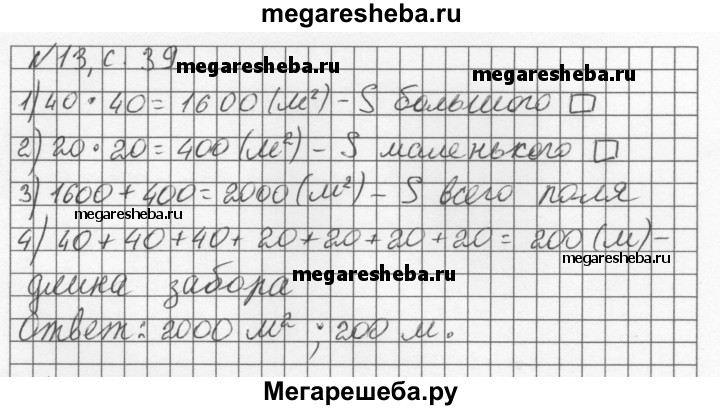 megaresheba.ru
№13, с. 39
megaresheba.ru
1) 40 · 40 = 1600 (м²) – S большого □
2) 20 · 20 = 400 (м²) – S маленького □
3) 1600 + 400 = 2000 (м²) – S всего поля
megaresheba.ru
4) 40 + 40 + 40 + 20 + 20 + 20 + 20 = 200 (м) –
megaresheba.ru
длина забора
megaresheba.ru
Ответ: 2000 м² ; 200 м.
Мегарешеба.ру